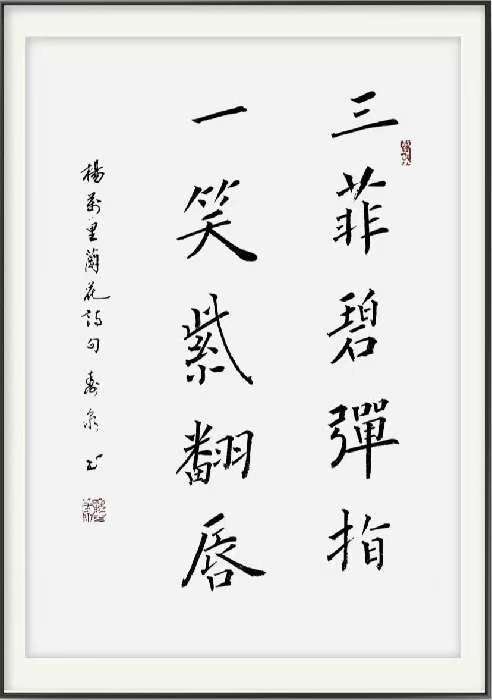 三菲碧彈指
一笑紫翻唇
楊萬里蘭花詩句 壽泉書